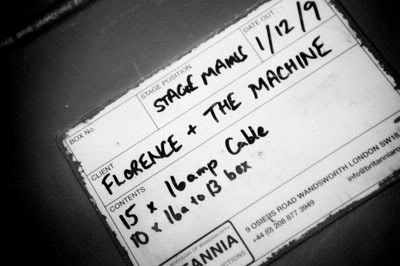 BOX No.
STAGE POSITION
STAGE MAINS
DATE OUT
1/12/9
CLIENT
FLORENCE + THE MACHINE
CONTENTS
15 x 16amp Cable
10 x 16a to 13 box
9 OSIERS ROAD WANDSWORTH LONDON SW18
+44 (0) 208 877 3949
info@britanniaro